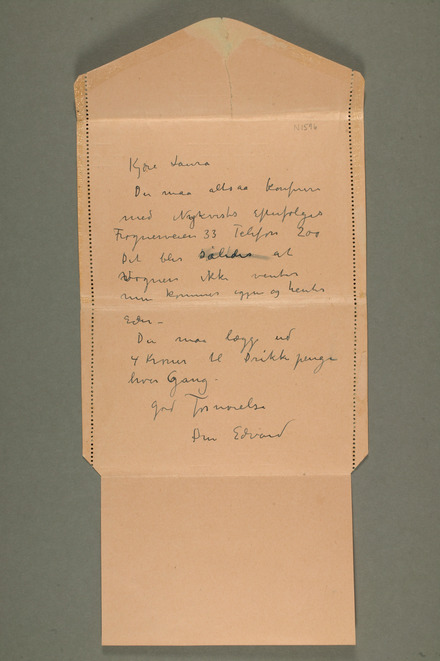 N1596
Kjære Laura
Du maa altsaa
med Nykvists Efterfølger
Frognerveien 33 Telefon 200
Det blir således at
Vognen ikke venter
men kommer igjen og henter
Eder –
Du maa lægge ud
4 Kroner til Drikkepenge
hver Gang.
God Fornøielse
Din Edvard